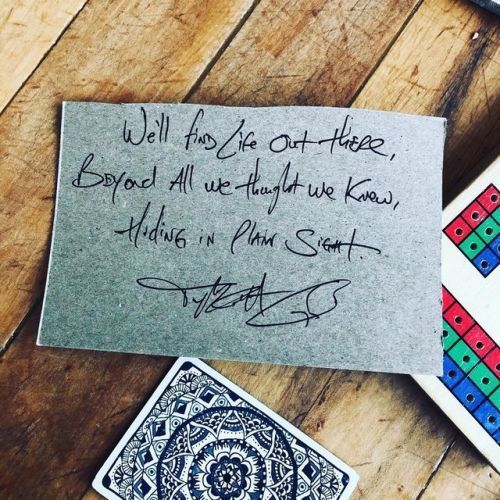 We'll find Life Out there,
Beyond All we thought we Knew,
Hiding in Plain Sight.